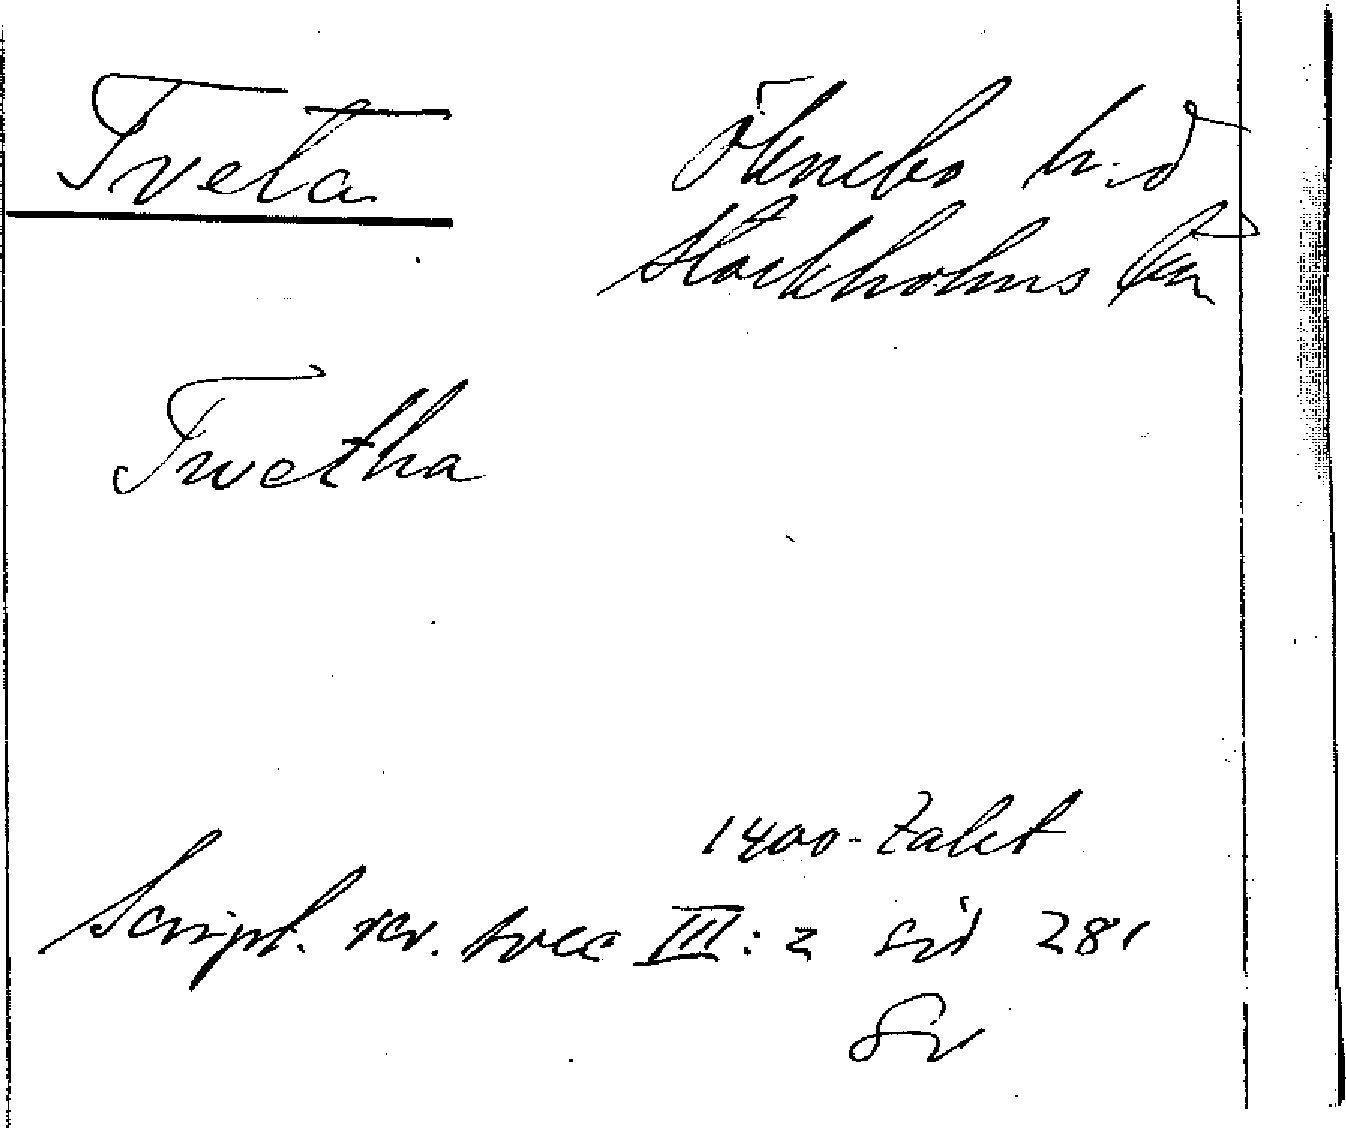 Tveta Öknebo h:d
Stockholms län
Twetha
1400-talet
Script. rer. svec III:2 sid 281